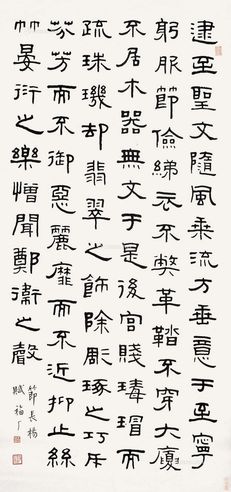 逮至聖文隨風乘流方垂意于至寧
躬服節儉綈衣不弊革鞜不穿大廈
不居木器無文于是後宮賤瑇瑁而
疏珠璣却翡翠之飾除彫琢之巧斥
芬芳而不御惡麗靡而不近抑止絲
竹晏衍之樂憎聞鄭衛之聲
節長楊
賦福厂